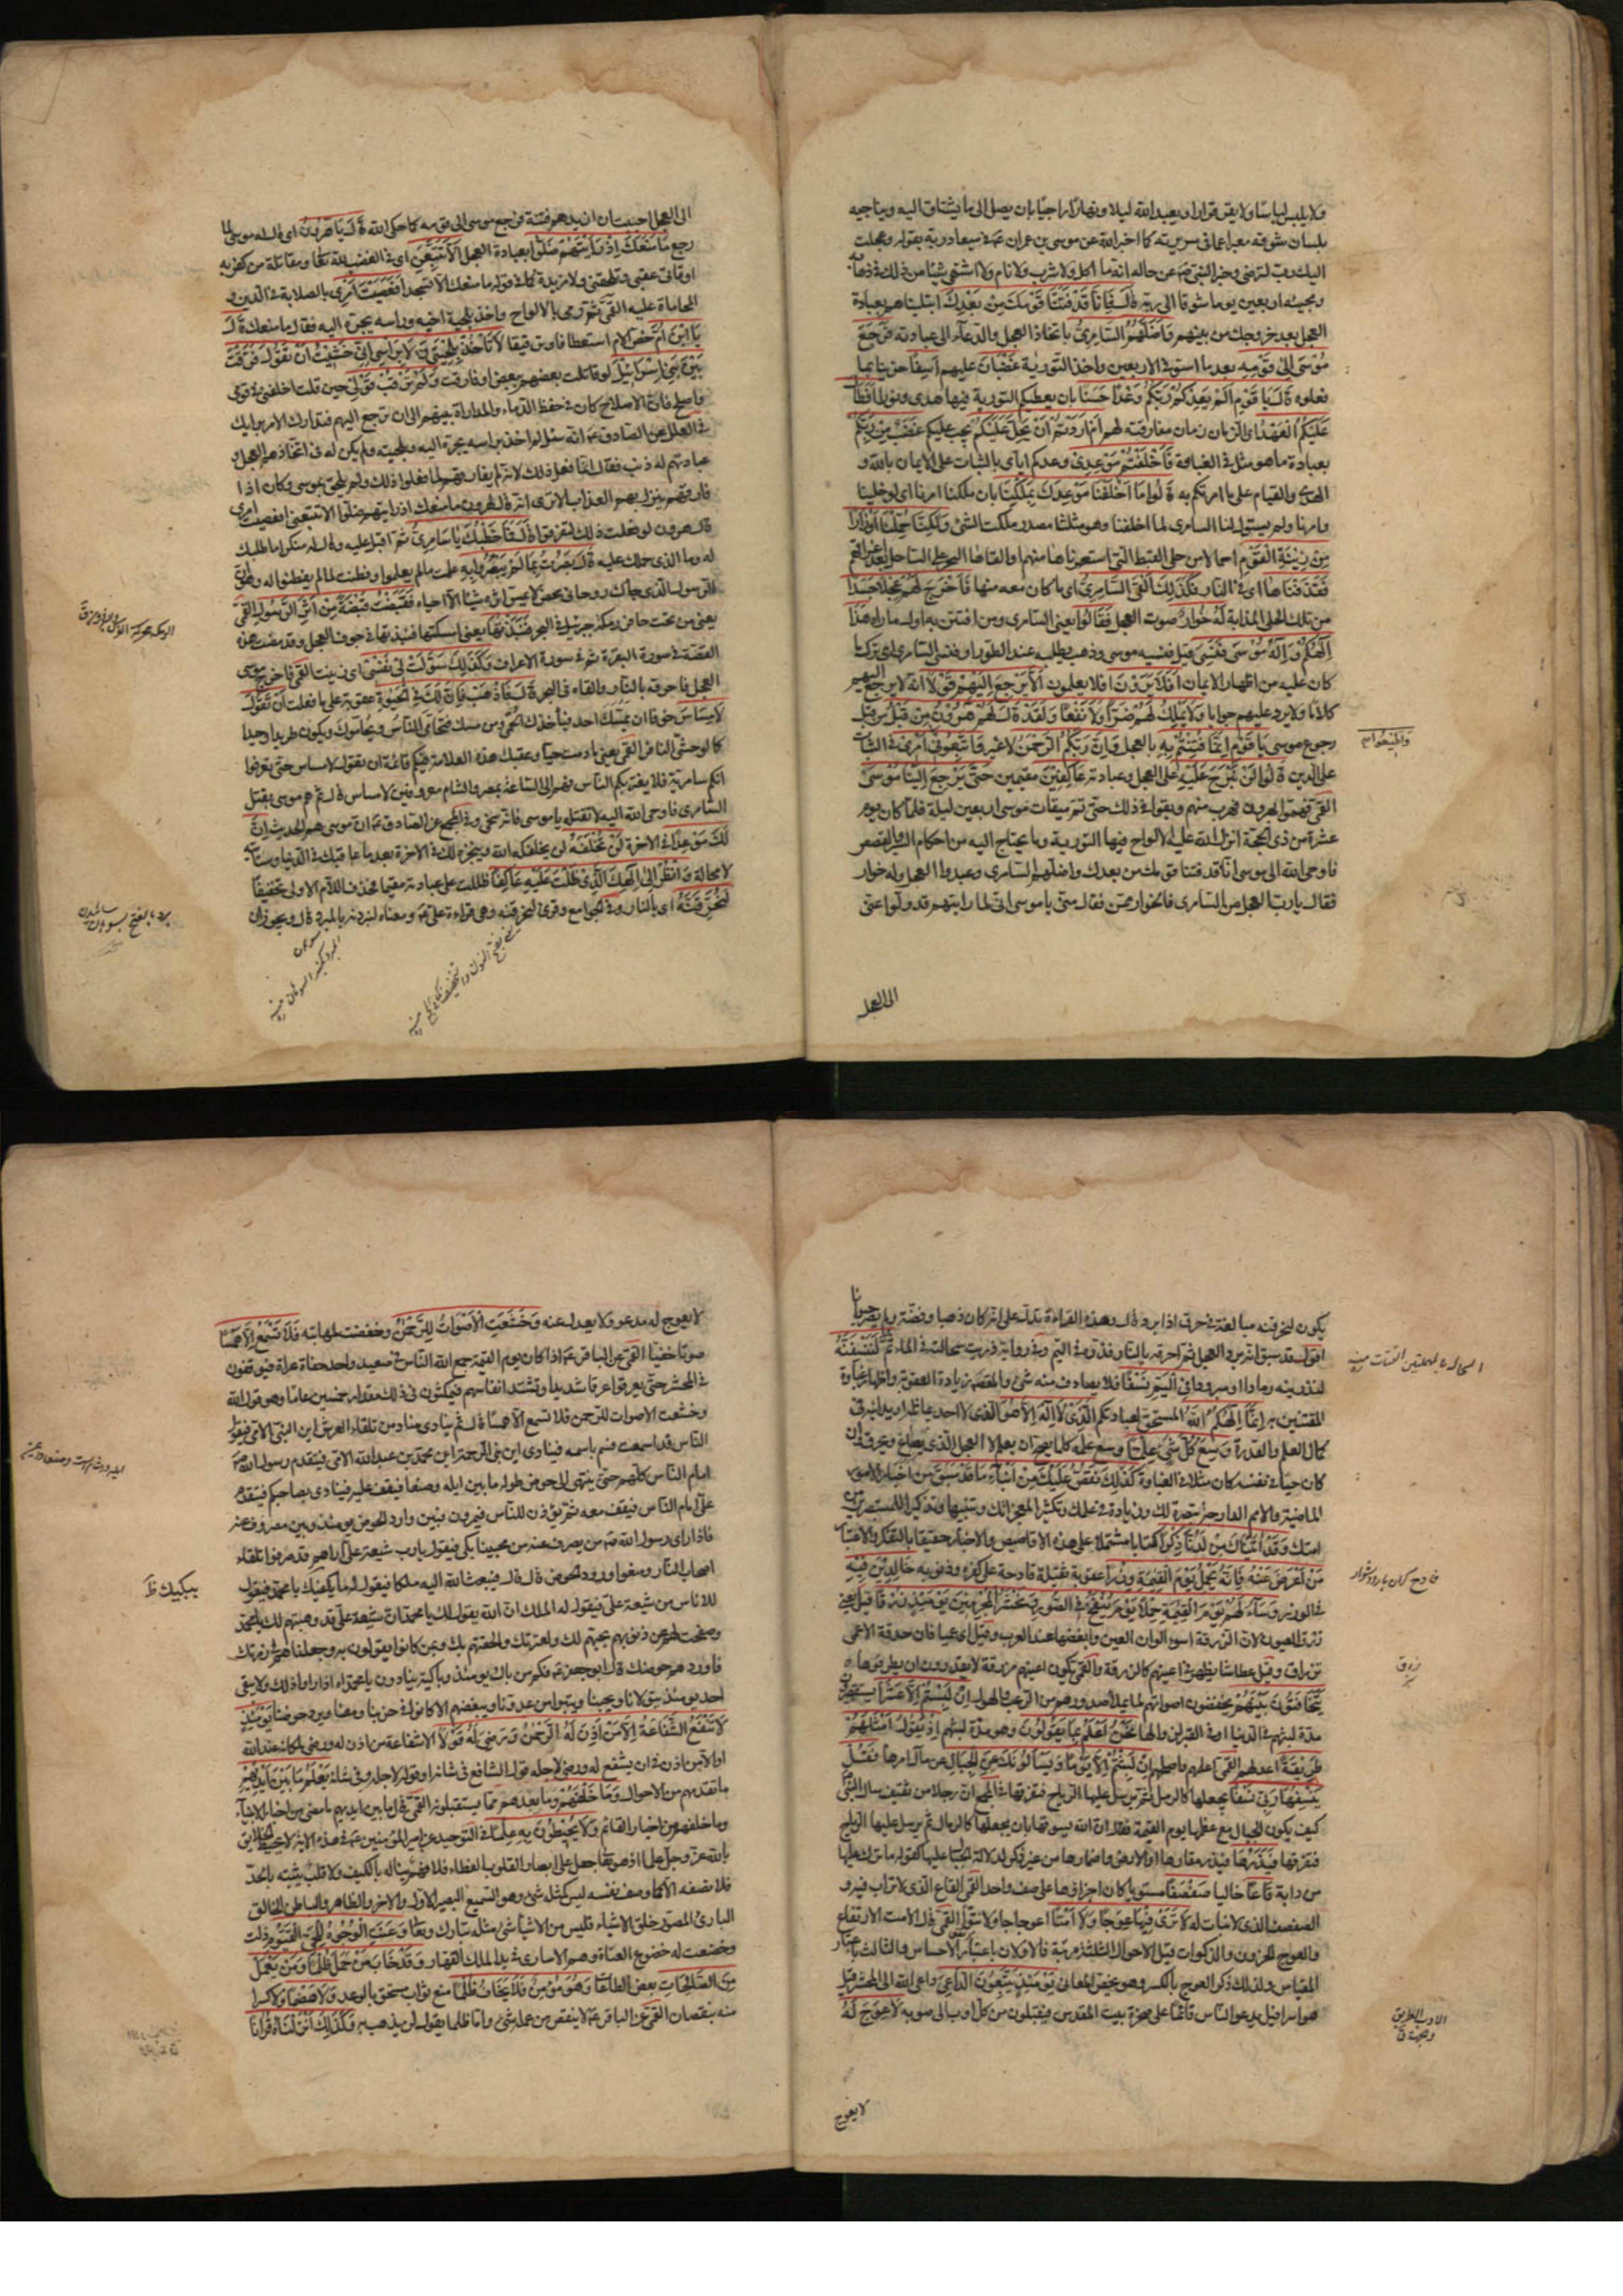 ولا يلبس لباسًا ولا يقر قرارا ويعبد الله ليلا ونهارًا راجيًا بان يصل الى ما يشتاق اليه ويناجيه
بلسان شوقه معبرا عما في سريرته كما اخبر الله عن موسى بن عمران ع في ميعاد ربه بقوله وعجلت
اليك رب لترضى وفسر النبي ص عن حاله انه ما اكل ولا شرب ولا نام ولا اشتهى شيئا من ذلك في ذهابه
ومجيئه اربعين يوما شوقا الى ربه قَالَ فَإِنَّا قَدْ فَتَنَّا قَوْمَكَ مِنْ بَعْدِكَ ابتليناهم بعبادة
العجل بعد خروجك من بينهم وَأَضَلَّهُمُ السَّامِرِيُّ باتخاذ العجل والدعاء الى عبادته فَرَجَعَ
مُوسَى إِلَى قَوْمِهِ بعد ما استوفى الاربعين واخذ التورية غَضْبَانَ عليهم أَسِفًا حزينا بما
فعلوه قَالَ يَا قَوْمِ أَلَمْ يَعِدْكُمْ رَبُّكُمْ وَعْدًا حَسَنًا بان يعطيكم التورية فيها هدى ونور أَفَطَالَ
عَلَيْكُمُ الْعَهْدُ اى الزمان زمان مفارقته لهم أَمْ أَرَدْتُمْ أَنْ يَحِلَّ عَلَيْكُمْ يجب عليكم غَضَبٌ مِنْ رَبِّكُمْ
بعبادة ما هو مثل في الغباوة فَأَخْلَفْتُمْ مَوْعِدِي وعدكم اياى بالثبات على الايمان بالله و
الهدى والقيام على ما امرتكم به قَالُوا مَا أَخْلَفْنَا مَوْعِدَكَ بِمَلْكِنَا بان ملكنا امرنا اى لو خلينا
وامرنا ولم يسول لنا السامرى لما اخلفنا وهو مثلثا مصدر ملكت الشئ وَلَكِنَّا حُمِّلْنَا أَوْزَارًا
مِنْ زِينَةِ الْقَوْمِ احمالا من حلى القبط التى استعرناها منهم والقاها البحر على الساحل بعد اغراقهم
فَقَذَفْنَاهَا اى في النار فَكَذَلِكَ أَلْقَى السَّامِرِيُّ اى ما كان معه منها فَأَخْرَجَ لَهُمْ عِجْلًا جَسَدًا
من تلك الحلى المذابة لَهُ خُوَارٌ صوت العجل فَقَالُوا يعنى السامرى ومن افتتن به اول ما راه هَذَا
إِلَهُكُمْ وَإِلَهُ مُوسَى فَنَسِيَ قيل فنسيه موسى وذهب يطلبه عند الطور او فنسى السامرى اى ترك ما
كان عليه من اظهار الايمان أَفَلَا يَرَوْنَ افلا يعلمون أَلَّا يَرْجِعُ إِلَيْهِمْ قَوْلًا انه لا يرجع اليهم
كلامًا ولا يرد عليهم جوابا وَلَا يَمْلِكُ لَهُمْ ضَرًّا وَلَا نَفْعًا وَلَقَدْ قَالَ لَهُمْ هَارُونُ مِنْ قَبْلُ من قبل
رجوع موسى يَا قَوْمِ إِنَّمَا فُتِنْتُمْ بِهِ بالعجل وَإِنَّ رَبَّكُمُ الرَّحْمَنُ لا غير فَاتَّبِعُونِي وَأَطِيعُوا أَمْرِي في الثبات
على الدين قَالُوا لَنْ نَبْرَحَ عَلَيْهِ على العجل وعبادته عَاكِفِينَ مقيمين حَتَّى يَرْجِعَ إِلَيْنَا مُوسَى
القمى فهموا بهرون فهرب منهم وبقوا في ذلك حتى تم ميقات موسى اربعين ليلة فلما كان يوم
عشرة من ذى الحجة انزل الله عليه الالواح فيها التورية وما يحتاج اليه من احكام السير والقصص
فاوحى الله الى موسى انا قد فتنا قومك من بعدك واضلهم السامرى وعبدوا العجل وله خوار
فقال يا رب العجل من السامرى فالخوار ممن فقال منى يا موسى انى لما رايتهم قد ولوا عنى
الى العجل
الى العجل احببت ان ازيدهم فتنة فرجع موسى الى قومه كما حكى الله قَالَ يَا هَارُونُ اى قال له موسى لما
رجع مَا مَنَعَكَ إِذْ رَأَيْتَهُمْ ضَلُّوا بعبادة العجل أَلَّا تَتَّبِعَنِ اى في الغضب لله تعالى ومقاتلة من كفر به
او تاتى عقبى وتلحقنى ولا مزيدة كما في قوله ما منعك الا تسجد أَفَعَصَيْتَ أَمْرِي بالصلابة في الدين و
المحاماة عليه القمى ثم رمى بالالواح واخذ بلحية اخيه وراسه يجره اليه فقال ما منعك قَالَ
يَا ابْنَ أُمَّ خص الام استعطافا وترقيقا لَا تَأْخُذْ بِلِحْيَتِي وَلَا بِرَأْسِي إِنِّي خَشِيتُ أَنْ تَقُولَ فَرَّقْتَ
بَيْنَ بَنِي إِسْرَائِيلَ لو قاتلت بعضهم ببعض او فارقت وَلَمْ تَرْقُبْ قَوْلِي حين قلت اخلفنى في قومى
واصلح فان الاصلاح كان في حفظ الدماء والمداراة بينهم الى ان ترجع اليهم فتدارك الامر برايك
في العلل عن الصادق ع انه سئل لم اخذ براسه يجره اليه وبلحيته ولم يكن له في اتخاذهم العجل و
عبادتهم له ذنب فقال انما فعل ذلك لانه لم يفارقهم لما فعلوا ذلك ولم يلحق بموسى وكان اذا
فارقهم ينزل بهم العذاب الا ترى انه قال لهرون ما منعك اذ رايتهم ضلوا الا تتبعنى افعصيت امرى
قال هرون لو فعلت ذلك لتفرقوا قَالَ فَمَا خَطْبُكَ يَا سَامِرِيُّ ثم اقبل عليه وقال له منكرا ما طلبك
له وما الذى حملك عليه قَالَ بَصُرْتُ بِمَا لَمْ يَبْصُرُوا بِهِ علمت ما لم يعلموا وفطنت لما لم يفطنوا له وهو ان
الرسول الذى جاءك روحانى محض لا يمس اثره شيئا الا احياه فَقَبَضْتُ قَبْضَةً مِنْ أَثَرِ الرَّسُولِ القمى
يعنى من تحت حافر رمكة جبرئيل في البحر فَنَبَذْتُهَا يعنى امسكتها فنبذتها في جوف العجل وقد مضت هذه
القصة في سورة البقرة ثم في سورة الاعراف وَكَذَلِكَ سَوَّلَتْ لِي نَفْسِي اى زينت القمى فاخرج موسى
العجل فاحرقه بالنار والقاه في البحر قَالَ فَاذْهَبْ فَإِنَّ لَكَ فِي الْحَيَاةِ عقوبة على ما فعلت أَنْ تَقُولَ
لَا مِسَاسَ خوفا ان يمسك احد فيأخذك الحمى ومن مسك فتحامى الناس ويحاموك ويكون طريدا وحيدا
كالوحشى النافر القمى يعنى ما دمت حيا وعقبك هذه العلامة فيكم قائمة ان تقول لا مساس حتى يعرفوا
انكم سامرية فلا يغتر بكم الناس فهم الى الساعة بمصر والشام معروفين لا مساس قال ثم هم موسى بقتل
السامرى فاوحى الله اليه لا تقتله يا موسى فانه سخى وفي المجمع عن الصادق ع ان موسى هم الحديث وَإِنَّ
لَكَ مَوْعِدًا في الاخرة لَنْ تُخْلَفَهُ لن يخلفكه الله وينجزه لك في الاخرة بعد ما عاقبك في الدنيا وسيأتيك
لا محالة وَانْظُرْ إِلَى إِلَهِكَ الَّذِي ظَلْتَ عَلَيْهِ عَاكِفًا ظللت على عبادته مقيما فحذف اللام الاولى تخفيفًا
لَنُحَرِّقَنَّهُ اى بالنار وفي الجوامع وقرئ لنحرقنه وهى قراءة على ع ومعناه لنبردنه بالمبرد قال ويجوز ان
يكون لنحرقنه مبالغة في حرق اذا برد قال وهذه القراءة تدل على انه كان ذهبا وفضة ولم يصر حيوانا
اقول قد سبق انه برد العجل ثم احرقه بالنار وفذره في اليم وفي رواية ذريت سحالته في الماء ثُمَّ لَنَنْسِفَنَّهُ
لنذرينه رمادا او مبرودا فِي الْيَمِّ نَسْفًا فلا يصادف منه شئ والمقصود زيادة العقوبة واظهار غباوة
المفتتنين به إِنَّمَا إِلَهُكُمُ اللَّهُ المستحق لعبادتكم الَّذِي لَا إِلَهَ إِلَّا هُوَ اذ لا احد يماثله او يدانيه في
كمال العلم والقدرة وَسِعَ كُلَّ شَيْءٍ عِلْمًا وسع علمه كل ما يصح ان يعلم لا العجل الذى يصاغ ويحرق وان
كان حيا في نفسه كان مثلا في الغباوة كَذَلِكَ نَقُصُّ عَلَيْكَ مِنْ أَنْبَاءِ مَا قَدْ سَبَقَ من اخبار الامور
الماضية والامم الدارجة تبصرة لك وزيادة في علمك وتكثيرا لمعجزاتك وتنبيها وتذكيرا للمستبصرين من
امتك وَقَدْ آتَيْنَاكَ مِنْ لَدُنَّا ذِكْرًا كتابا مشتملا على هذه الاقاصيص والاخبار حقيقا بالتفكر والاعتبار
مَنْ أَعْرَضَ عَنْهُ فَإِنَّهُ يَحْمِلُ يَوْمَ الْقِيَامَةِ وِزْرًا عقوبة ثقيلة فادحة على كفره وذنوبه خَالِدِينَ فِيهِ
في الوزر وَسَاءَ لَهُمْ يَوْمَ الْقِيَامَةِ حِمْلًا يَوْمَ يُنْفَخُ فِي الصُّورِ وَنَحْشُرُ الْمُجْرِمِينَ يَوْمَئِذٍ زُرْقًا قيل يعنى
زرق العيون لان الزرقة اسوء الوان العين وابغضها عند العرب وقيل اى عميا فان حدقة الاعمى
تزراق وقيل عطاشا يظهر في اعينهم كالزرقة والقمى يكون اعينهم مزرقة لا يقدرون ان يطرفوها
يَتَخَافَتُونَ بَيْنَهُمْ يخفضون اصواتهم لما يملأ صدورهم من الرعب والهول إِنْ لَبِثْتُمْ إِلَّا عَشْرًا يستقصرون
مدة لبثهم في الدنيا او في القبر لزوالها نَحْنُ أَعْلَمُ بِمَا يَقُولُونَ وهو مدة لبثهم إِذْ يَقُولُ أَمْثَلُهُمْ
طَرِيقَةً اعدلهم القمى اعلمهم واصلحهم إِنْ لَبِثْتُمْ إِلَّا يَوْمًا وَيَسْأَلُونَكَ عَنِ الْجِبَالِ عن مآل امرها فَقُلْ
يَنْسِفُهَا رَبِّي نَسْفًا يجعلها كالرمل ثم يرسل عليها الرياح فتفرقها في المجمع ان رجلا من ثقيف سال النبى ص
كيف يكون الجبال مع عظمها يوم القيمة فقال ان الله يسوقها بان يجعلها كالرمال ثم يرسل عليها الرياح
فتفرقها فَيَذَرُهَا فيذر مقارها او الارض واضمارها من غير ذكر لدلالة الجبال عليها كقوله ما ترك عليها
من دابة قَاعًا خاليا صَفْصَفًا مستويا كان اجزاؤها على صف واحد القمى القاع الذى لا تراب فيه و
الصفصف الذى لا نبات له لَا تَرَى فِيهَا عِوَجًا وَلَا أَمْتًا اعوجاجا ولا نتوا القمى قال الامت الارتفاع
والعوج الحزون والذكوات قيل الاحوال الثلثة مرتبة فالاولان باعتبار الاحساس والثالث باعتبار
المقياس ولذلك ذكر العوج بالكسر وهو يخص المعانى يَوْمَئِذٍ يَتَّبِعُونَ الدَّاعِيَ داعى الله الى المحشر قيل
هو اسرافيل يدعو الناس قائما على صخرة بيت المقدس فيقبلون من كل اوب الى صوبه لَا عِوَجَ لَهُ
لا يعوج
لا يعوج له مدعو ولا يعدل عنه وَخَشَعَتِ الْأَصْوَاتُ لِلرَّحْمَنِ وخفضت لمهابته فَلَا تَسْمَعُ إِلَّا هَمْسًا
صوتا خفيا القمى عن الباقر ع اذا كان يوم القيمة جمع الله الناس في صعيد واحد حفاة عراة فيوقفون
في المحشر حتى يعرقوا عرقا شديدا وتشتد انفاسهم فيمكثون في ذلك مقدار خمسين عاما وهو قول الله
وخشعت الاصوات للرحمن فلا تسمع الا همسا قال ثم ينادى مناد من تلقاء العرش اين النبى الامى فيقول
الناس قد اسمعت فسم باسمه فينادى اين نبى الرحمة اين محمد بن عبد الله الامى فيتقدم رسول الله ص
امام الناس كلهم حتى ينتهى الى حوض طوله ما بين ايله وصنعا فيقف عليه فينادى بصاحبكم فيتقدم
على امام الناس فيقف معه ثم يؤذن للناس فيمرون فبين وارد الحوض يومئذ وبين مصروف عنه
فاذا راى رسول الله ص من يصرف عنه من محبينا بكى فيقول يا رب شيعة على اراهم قد صرفوا تلقاء
اصحاب النار ومنعوا ورود الحوض قال قال فيبعث الله اليه ملكا فيقول له ما يبكيك يا محمد فيقول
لاناس من شيعة على فيقول له الملك ان الله يقول لك يا محمد ان شيعة على قد وهبتهم لك يا محمد
وصفحت لهم عن ذنوبهم بحبهم لك ولعترتك والحقتهم بك وبمن كانوا يقولون به وجعلناهم في زمرتك
فاوردهم حوضك قال ابو جعفر ع فكم من باك يومئذ وباكية ينادون يا محمداه اذا راوا ذلك ولا يبقى
احد يومئذ يتولانا ويحبنا ويتبرا من عدونا ويبغضهم الا كانوا في حزبنا ومعنا ويرد حوضنا يَوْمَئِذٍ
لَا تَنْفَعُ الشَّفَاعَةُ إِلَّا مَنْ أَذِنَ لَهُ الرَّحْمَنُ وَرَضِيَ لَهُ قَوْلًا الا شفاعة من اذن له ورضى لمكانه عند الله
او الا من اذن في ان يشفع له ورضى لاجله قول الشافع في شانه او قوله لاجله وفي شانه يَعْلَمُ مَا بَيْنَ أَيْدِيهِمْ
ما تقدمهم من الاحوال وَمَا خَلْفَهُمْ وما بعدهم مما يستقبلونه القمى قال ما بين ايديهم ما مضى من اخبار الانبياء
وما خلفهم من اخبار القائم وَلَا يُحِيطُونَ بِهِ عِلْمًا في التوحيد عن امير المؤمنين ع في هذه الاية لا يحيط الخلائق
بالله عز وجل علما اذ هو تعالى جعل على ابصار القلوب الغطاء فلا فهم يناله بالكيف ولا قلب يثبته بالحد
فلا نصفه الا كما وصف نفسه ليس كمثله شئ وهو السميع البصير الاول والاخر والظاهر والباطن الخالق
البارئ المصور خلق الاشياء فليس من الاشياء شئ مثله تبارك وتعالى وَعَنَتِ الْوُجُوهُ لِلْحَيِّ الْقَيُّومِ ذلت
وخضعت له خضوع العناة وهم الاسارى في يد الملك القهار وَقَدْ خَابَ مَنْ حَمَلَ ظُلْمًا وَمَنْ يَعْمَلْ
مِنَ الصَّالِحَاتِ بعض الطاعات وَهُوَ مُؤْمِنٌ فَلَا يَخَافُ ظُلْمًا منع ثواب مستحق بالوعد وَلَا هَضْمًا ولا كسرا
منه بنقصان القمى عن الباقر ع لا ينقص من عمله شئ واما ظلما يقول لن يذهب به وَكَذَلِكَ أَنْزَلْنَاهُ قُرْآنًا